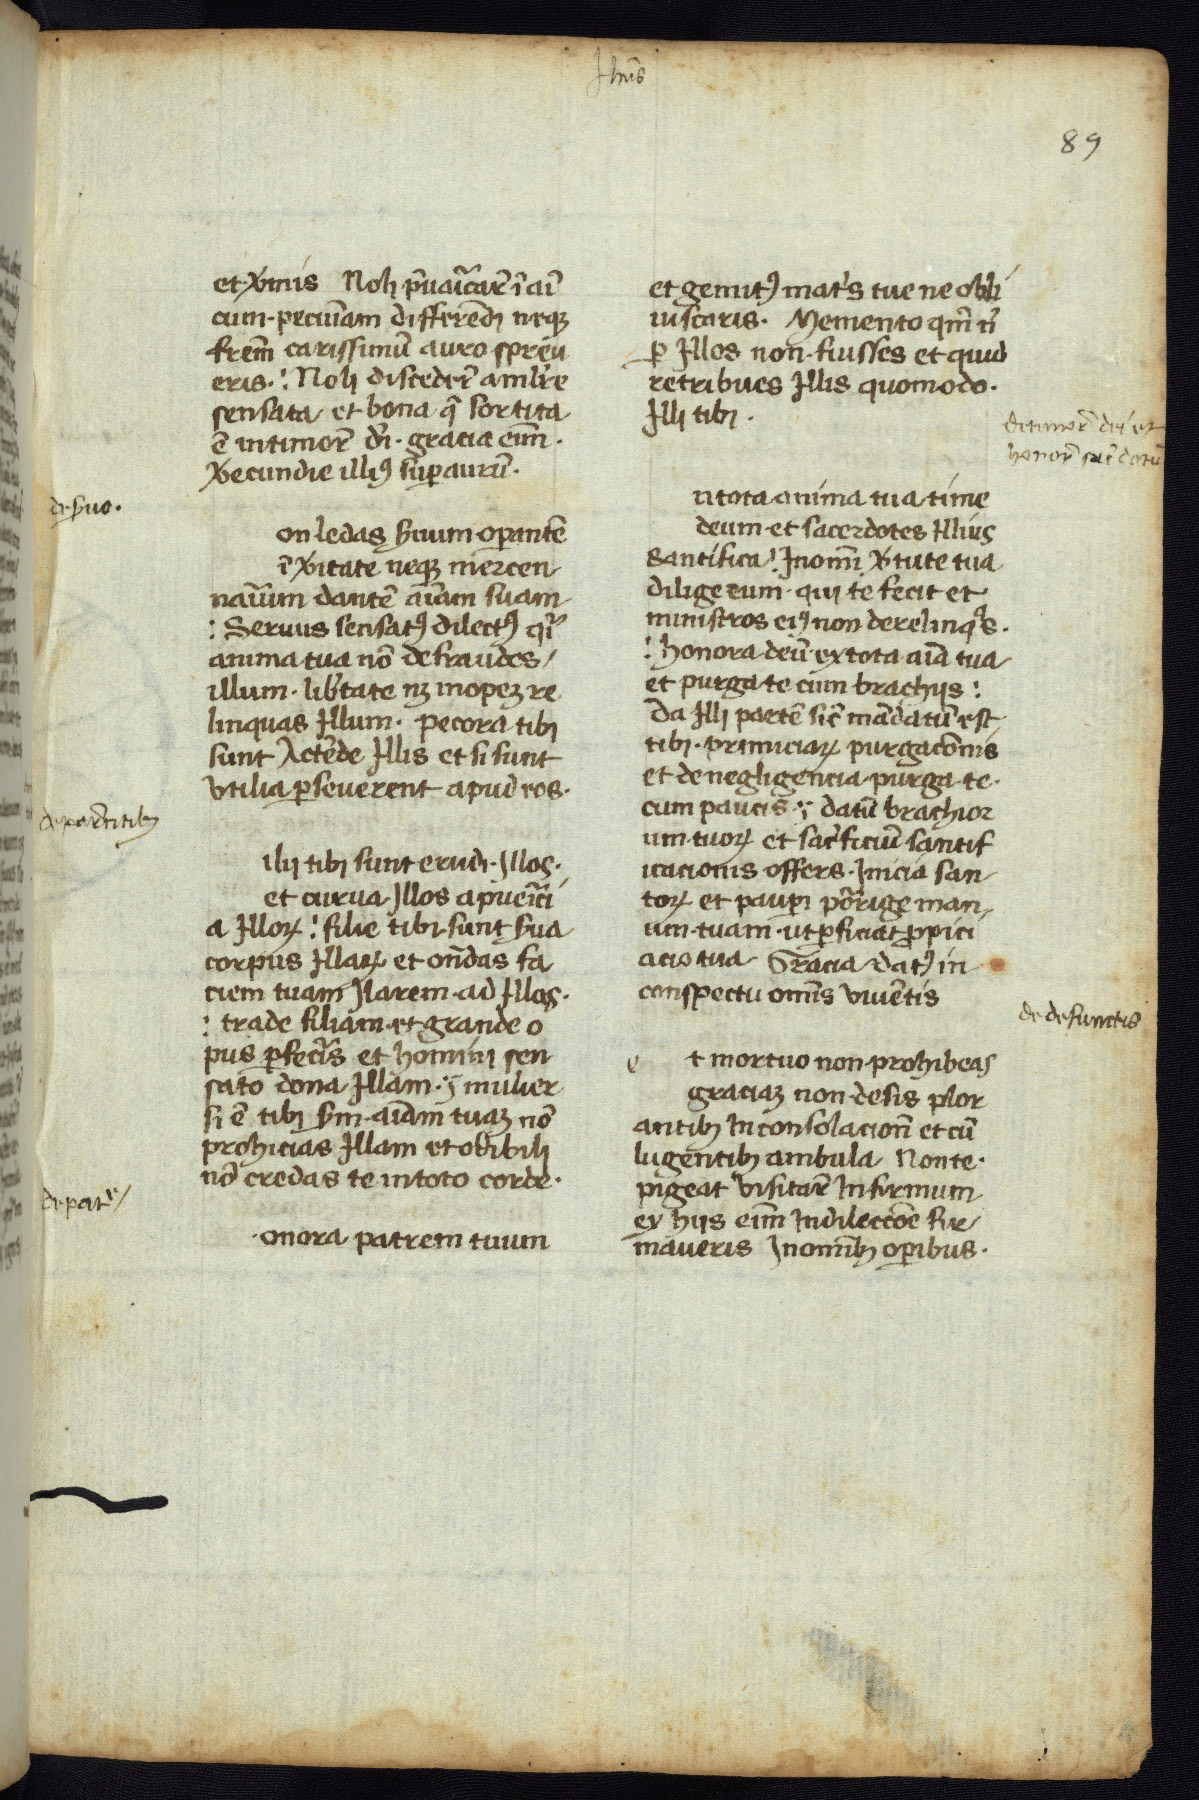 Jhūs
89
et vīnis Noli p̄uaīcar̄ ī aī
cum · pecuīam differēdi neqꝫ
frēm carissimū auro spreu
eris · : Noli discedeř a mlr̄e
sensata et bona q̄ sortita
ē in timor̄ dn̄i · gracia eīm ·
Verecundie illiꝰ suꝑ aurū ·
de ẜuo ·
on ledas ẜuum oꝑantē
ī v̓itate neqꝫ mercen
nariūm dantē aīam suam
: Seruus sensatꝰ dilectꝰ qī
anima tua nō defraudes /
illum · lib̓tate nꝫ inopeꝫ re
linquas Illum · pecora tibi
sunt Actēde Illis et si sunt
vtilia ꝑseuerent apud vos ·
de parētibꝫ
ilij tibi sunt erudi · Jllos ·
et curua Jllos a pueīci
a Illoꝝ : filie tibi sunt ẜua
corpus Illaꝝ et on̄das fa
ciem tuam Jlarem ad Jllos ·
: trade filiam et grande o
pus ꝑfecīs et homini sen
sato dona Illam · : mulier
si ē tibi ẜm aīam tuaꝫ nō
prohicias Illam et odibili
nō credas te in toto corde ·
de patre /
·onora patrem tuum
et gemitꝰ mat̓s tue ne obli
uiscaris · Memento qm̄ n̄
ꝑ Illos non fuisses et quid
retribues Illis quomodo ·
Illi tibi ·
de timor̄ dei et
honor̄ sac̄dotū
n tota anima tua time
deum et sacerdotes Illius
santifica : In om̄i v̓tute tua
dilige eum · qui te fecit et
ministros eiꝰ non derelinqͥs ·
: honora deū ex tota aīa tua
et purga te cum brachijs :
Da Illi partē sic̄ mādatū est
tibi · primiciaꝝ purgacōnis
et de negligencia purga te ·
cum paucis · : datū brachior
um tuoꝝ et sac̓ficiū santif
icacionis offers · Inicia san
toꝝ et pauꝑi porrige man
um tuam · ut ꝑficiat ꝓpici
acio tua Gracia datꝰ in
conspectu omīs viuētis
de defunctis
e t mortuo non prohibeas
graciaꝫ non desis plor
antibꝫ In consolacioñ et cū
lugentibꝫ ambula Non te ·
pigeat visitar̄ Infirmum
ex hijs eīm In dileccōe fir
maueris In omībꝫ oꝑibus ·